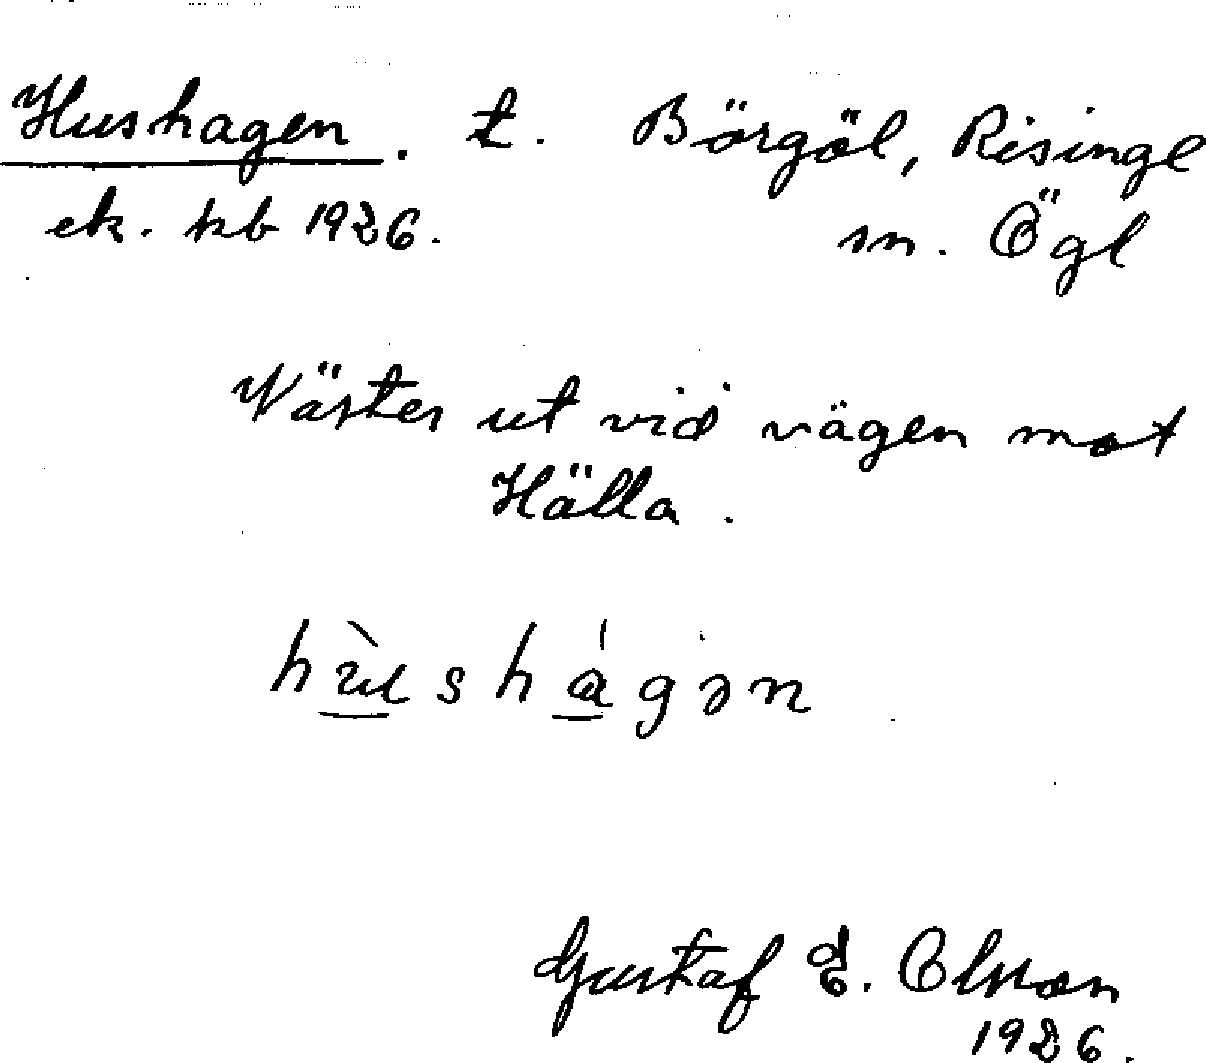 Hushagen. t. Börgöl, Risinge
ek. kb 1926. sn. Ögl
Väster ut vid vägen mot
Hälla.
hùshágən
Gustaf E. Olsson
1926.